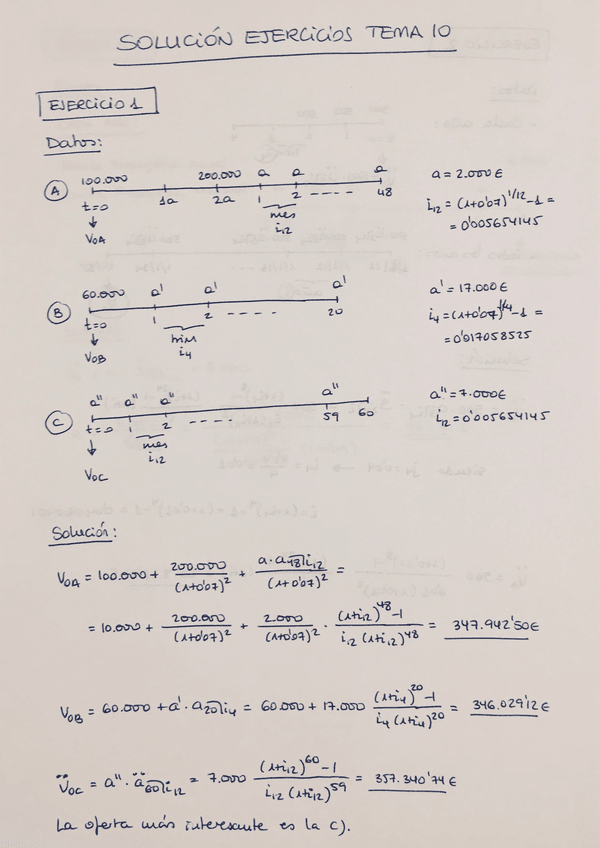 SOLUCIÓN EJERCICIOS TEMA 10
EJERCICIO 1
Datos:
A 100.000 200.000 a a a
t=0 1a 2a 1 2 ---- 48
mes
i12
V0A
a = 2.000€
i12 = (1+0'07)^1/12 - 1 =
= 0'005654145
B 60.000 a' a' a'
t=0 1 2 ---- 20
trim
i4
V0B
a' = 17.000€
i4 = (1+0'07)^1/4 - 1 =
= 0'017058525
C a" a" a" a"
t=0 1 2 ---- 59 60
mes
i12
V0C
a" = 7.000€
i12 = 0'005654145
Solución:
V0A = 100.000 + 200.000/(1+0'07)^2 + a·a48|i12/(1+0'07)^2 =
= 10.000 + 200.000/(1+0'07)^2 + 2.000/(1+0'07)^2 · (1+i12)^48 - 1/i12 (1+i12)^48 = 347.942'50€
V0B = 60.000 + a'·a20|i4 = 60.000 + 17.000 (1+i4)^20 - 1/i4 (1+i4)^20 = 346.029'12€
V̈0C = a"·ä60|i12 = 7.000 (1+i12)^60 - 1/i12 (1+i12)^59 = 357.340'74€
La oferta más interesante es la C).